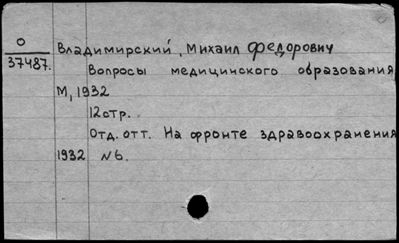 О
37487.
Владимирский, Михаил Федорович
Вопросы медицинского образования
М, 1932
12 стр.
Отд. отт. На фронте здравоохранения
1932 N6.